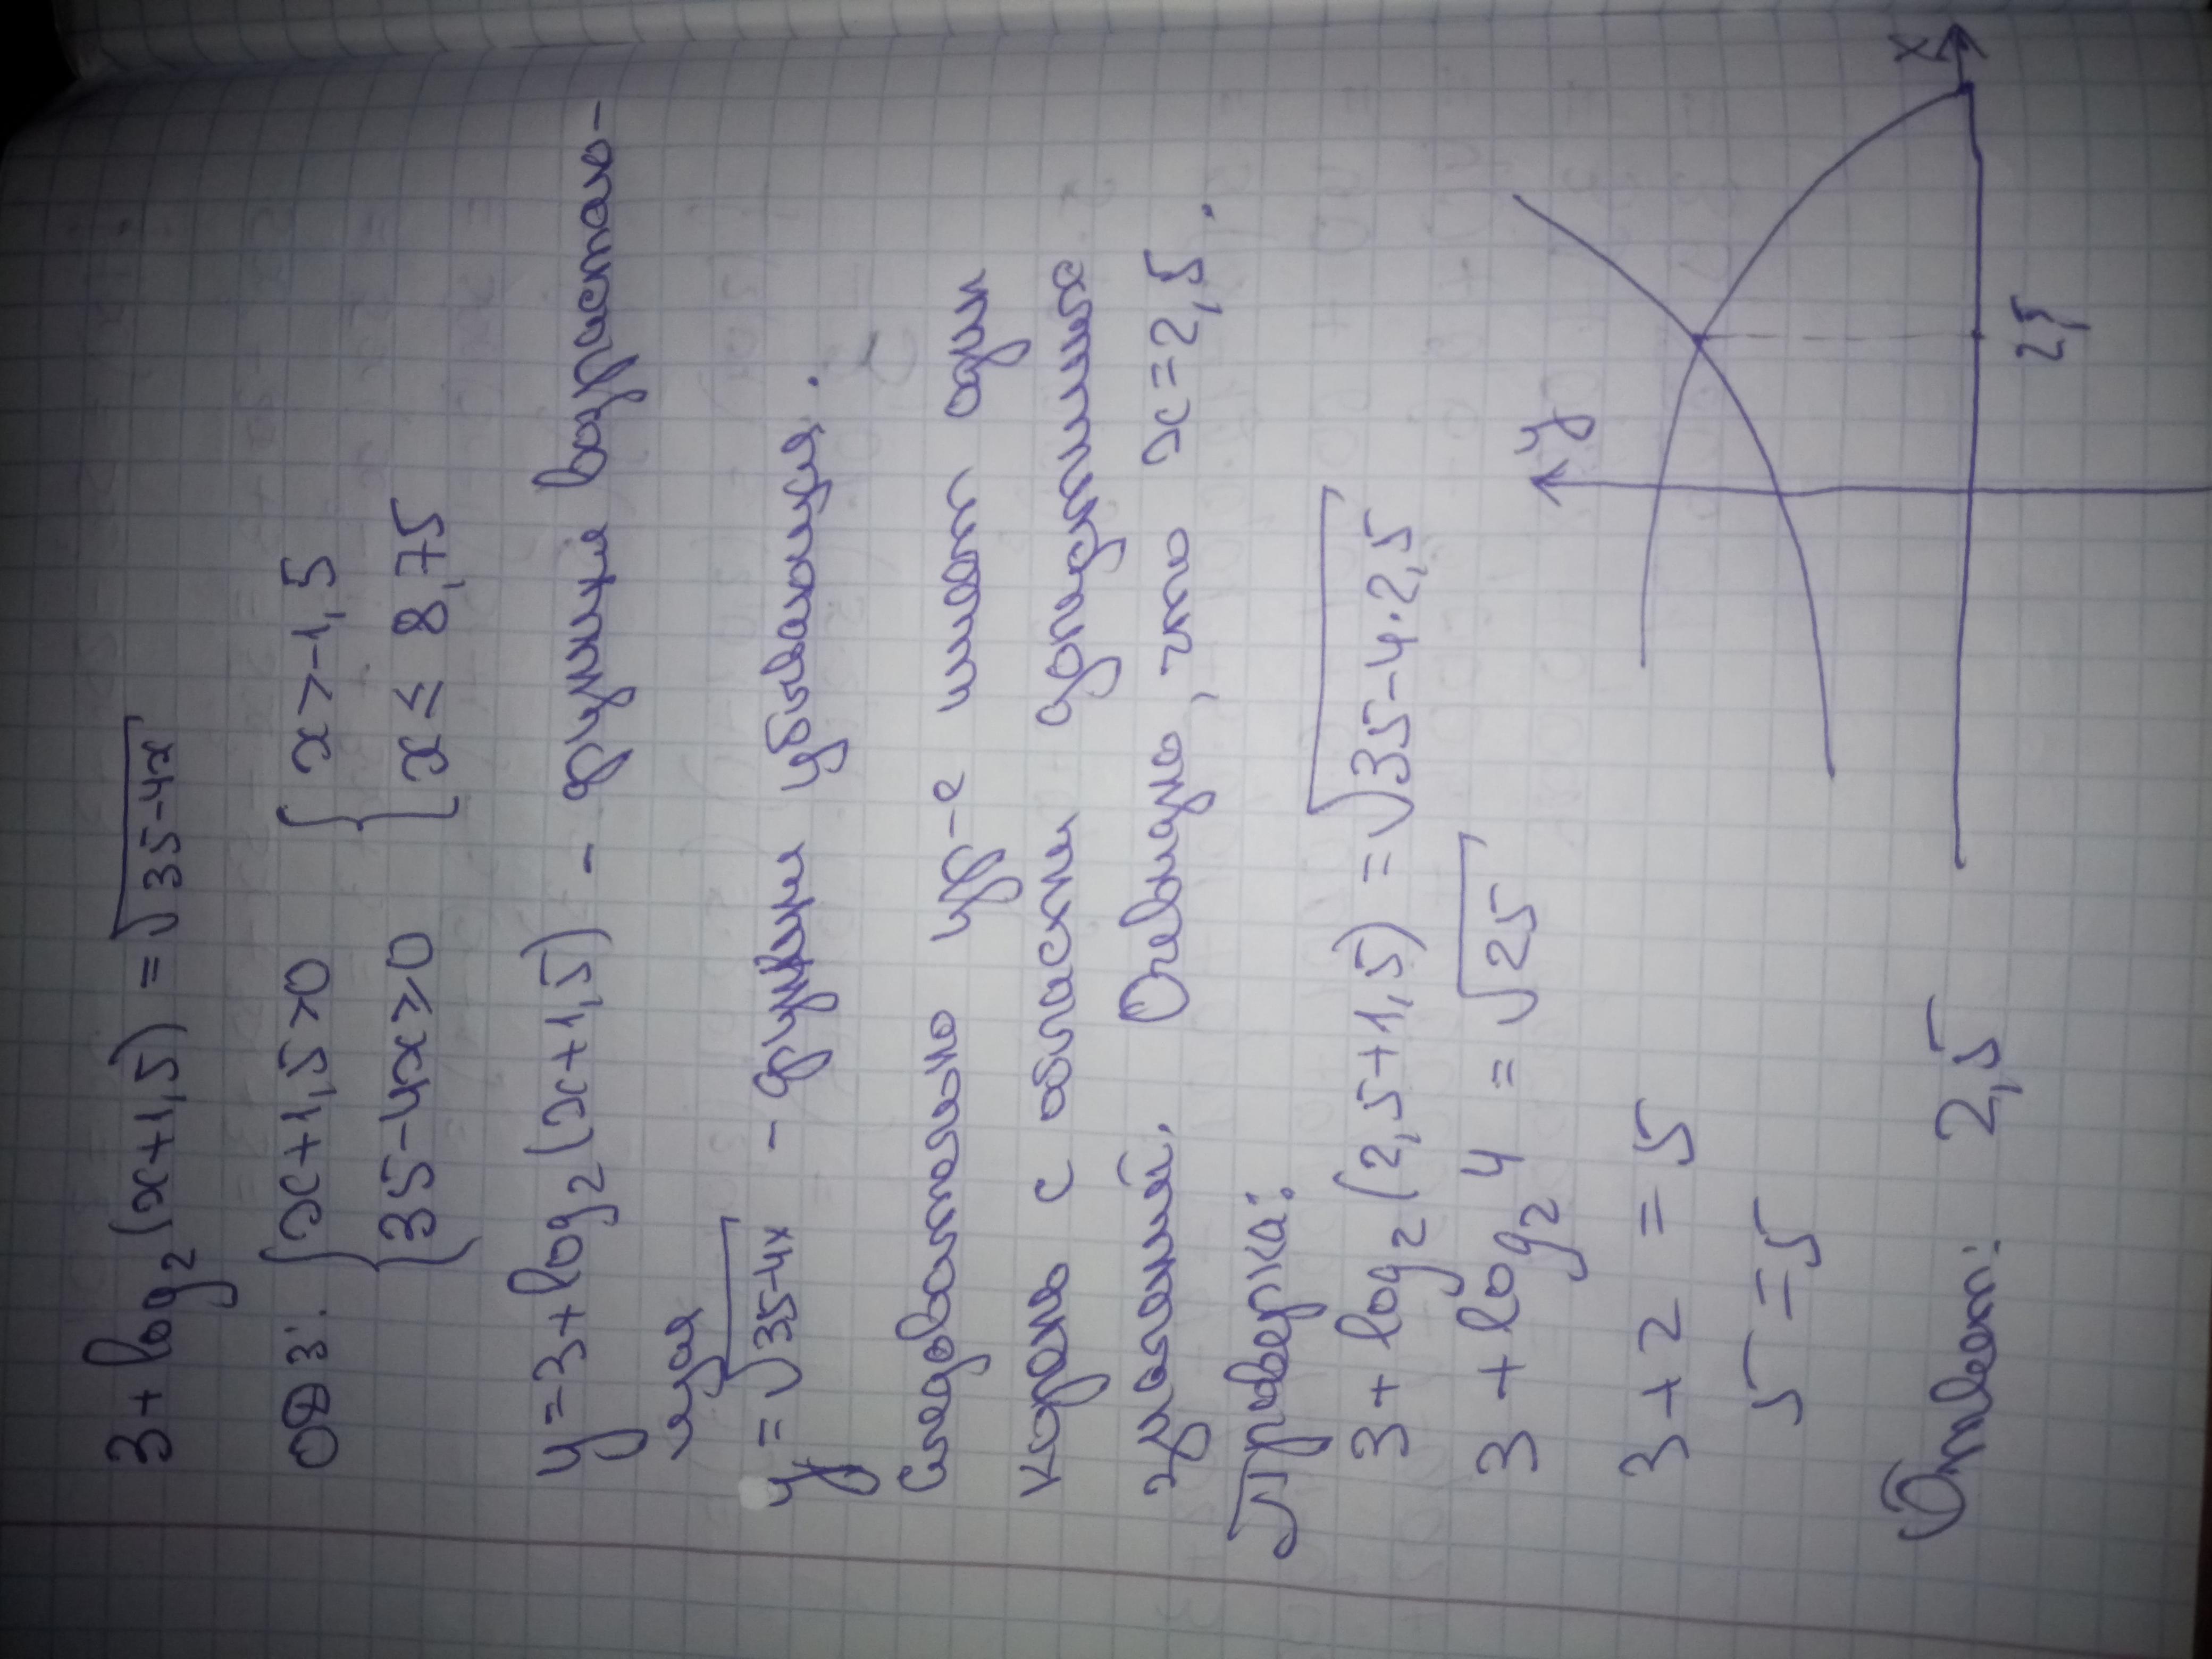 3 + log₂(x+1,5) = √35-4x
ОДЗ: { x+1,5>0 { x>-1,5
{ 35-4x≥0 { x ≤ 8,75
y=3+log₂(x+1,5) - функция возрастаю-
щая
y=√35-4x - функция убывающая.
Следовательно ур-е имеет один
корень с области допустимых
значений. Очевидно, что x=2,5.
Проверка:
3+log₂(2,5+1,5)=√35-4·2,5
3+log₂4 = √25
3+2 = 5
5=5
Ответ: 2,5
y
x
2,5